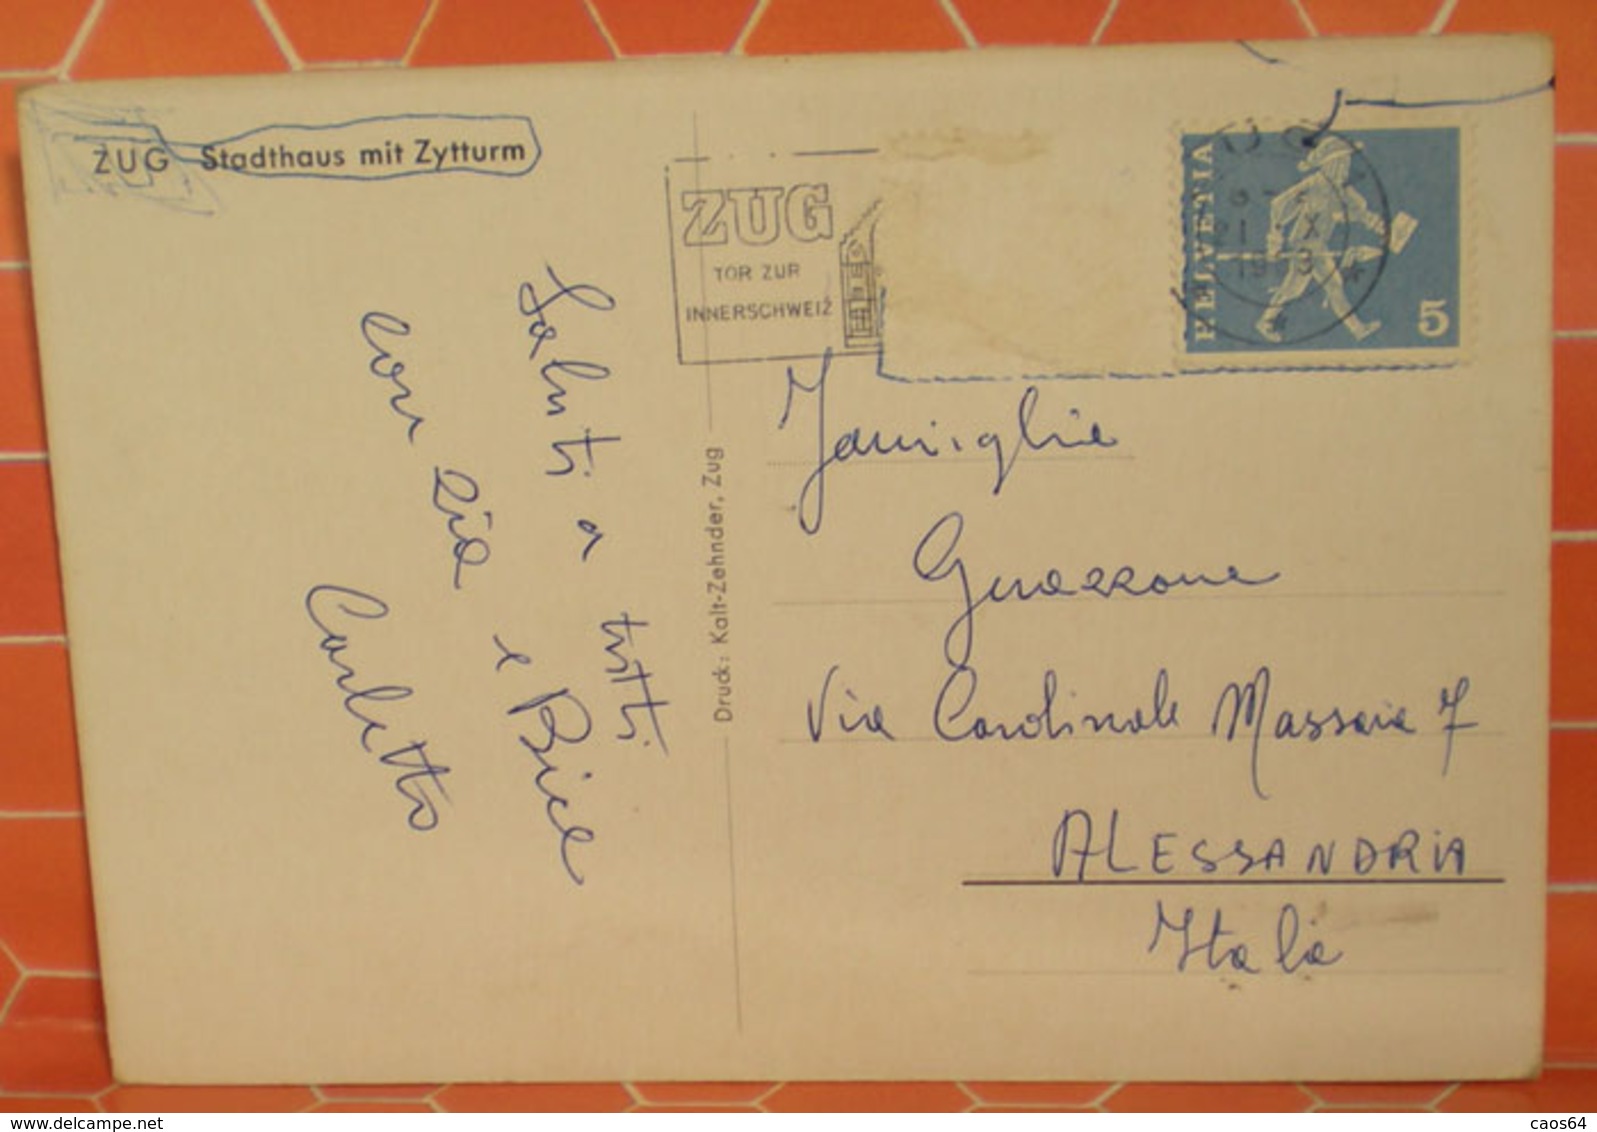 ZUG Stadthaus mit Zytturm
ZUG
TOR ZUR
INNERSCHWEIZ
HELVETIA
5
Saluti a tutti
con zia e Bice
Carletto
Druck: Kalt-Zehnder, Zug
Famiglia
Guazzone
Via Cardinale Massaia 7
ALESSANDRIA
Italia
caos64